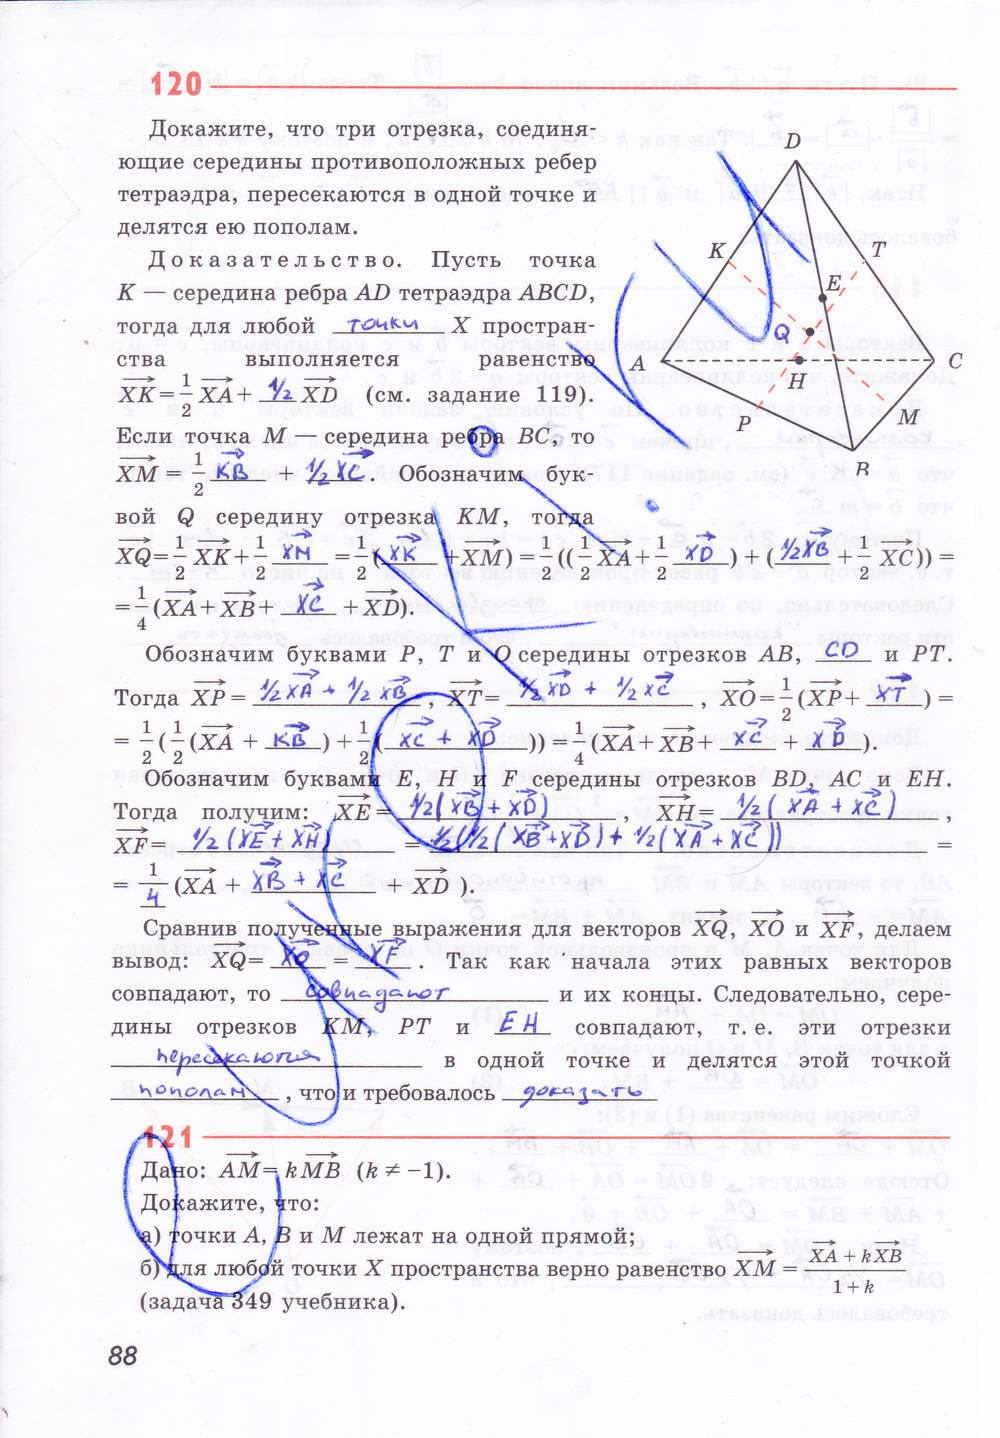 120
Докажите, что три отрезка, соединя-
ющие середины противоположных ребер
тетраэдра, пересекаются в одной точке и
делятся ею пополам.
Доказательство. Пусть точка
K — середина ребра AD тетраэдра ABCD,
тогда для любой точки X простран-
ства выполняется равенство
XK = 1/2 XA + 1/2 XD (см. задание 119).
Если точка M — середина ребра BC, то
XM = 1/2 XB + 1/2 XC. Обозначим бук-
вой Q середину отрезка KM, тогда
XQ = 1/2 XK + 1/2 XM = 1/2 (XK + XM) = 1/2 (( 1/2 XA + 1/2 XD ) + ( 1/2 XB + 1/2 XC)) =
= 1/4 (XA + XB + XC + XD).
Обозначим буквами P, T и O середины отрезков AB, CD и PT.
Тогда XP = 1/2 XA + 1/2 XB, XT = 1/2 XD + 1/2 XC, XO = 1/2 (XP + XT) =
= 1/2 ( 1/2 (XA + XB) + 1/2 ( XC + XD )) = 1/4 (XA + XB + XC + XD).
Обозначим буквами E, H и F середины отрезков BD, AC и EH.
Тогда получим: XE = 1/2 (XB + XD), XH = 1/2 ( XA + XC ),
XF = 1/2 (XE + XH) = 1/2 (1/2 ( XB + XD) + 1/2 ( XA + XC )) =
= 1/4 (XA + XB + XC + XD ).
Сравнив полученные выражения для векторов XQ, XO и XF, делаем
вывод: XQ = XO = XF. Так как начала этих равных векторов
совпадают, то совпадают и их концы. Следовательно, сере-
дины отрезков KM, PT и EH совпадают, т. е. эти отрезки
пересекаются в одной точке и делятся этой точкой
пополам, что и требовалось доказать
D
K
T
E
Q
A
C
H
P
M
B
121
Дано: AM = kMB (k ≠ −1).
Докажите, что:
а) точки A, B и M лежат на одной прямой;
б) для любой точки X пространства верно равенство XM = (XA + kXB)/(1 + k)
(задача 349 учебника).
88